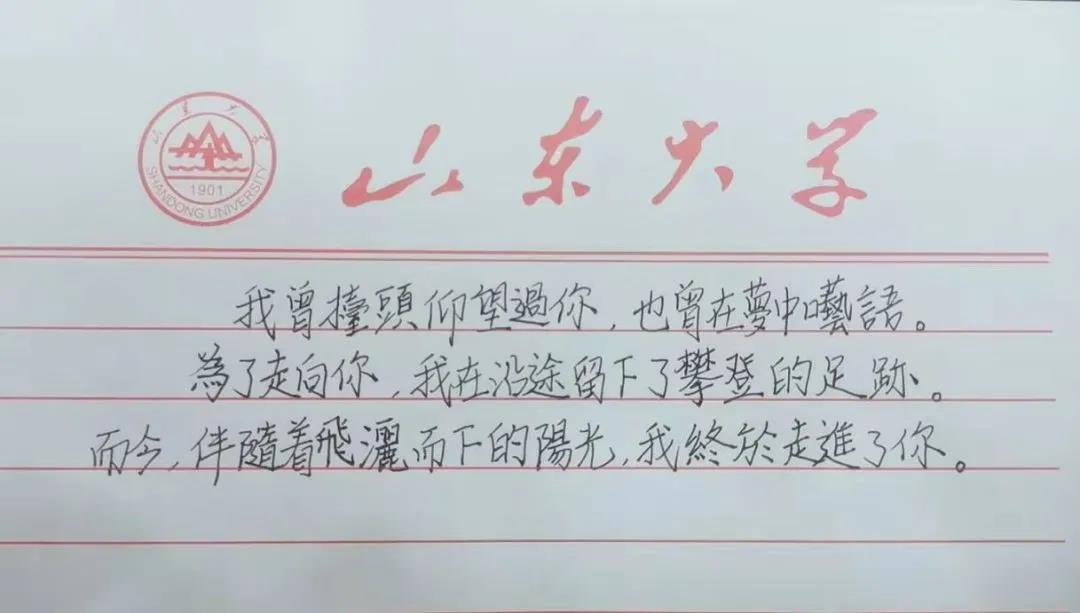 山东大学
山东大学
SHANDONG UNIVERSITY
1901
我曾擡頭仰望過你，也曾在夢中囈語。
為了走向你，我在沿途留下了攀登的足跡。
而今，伴隨着飛灑而下的陽光，我終於走進了你。